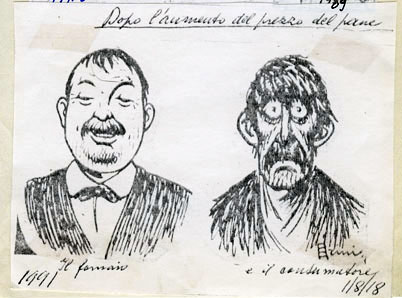 1989
Dopo l'aumento del prezzo del pane
Il fornaio
e il consumatore
1991
1/8/18